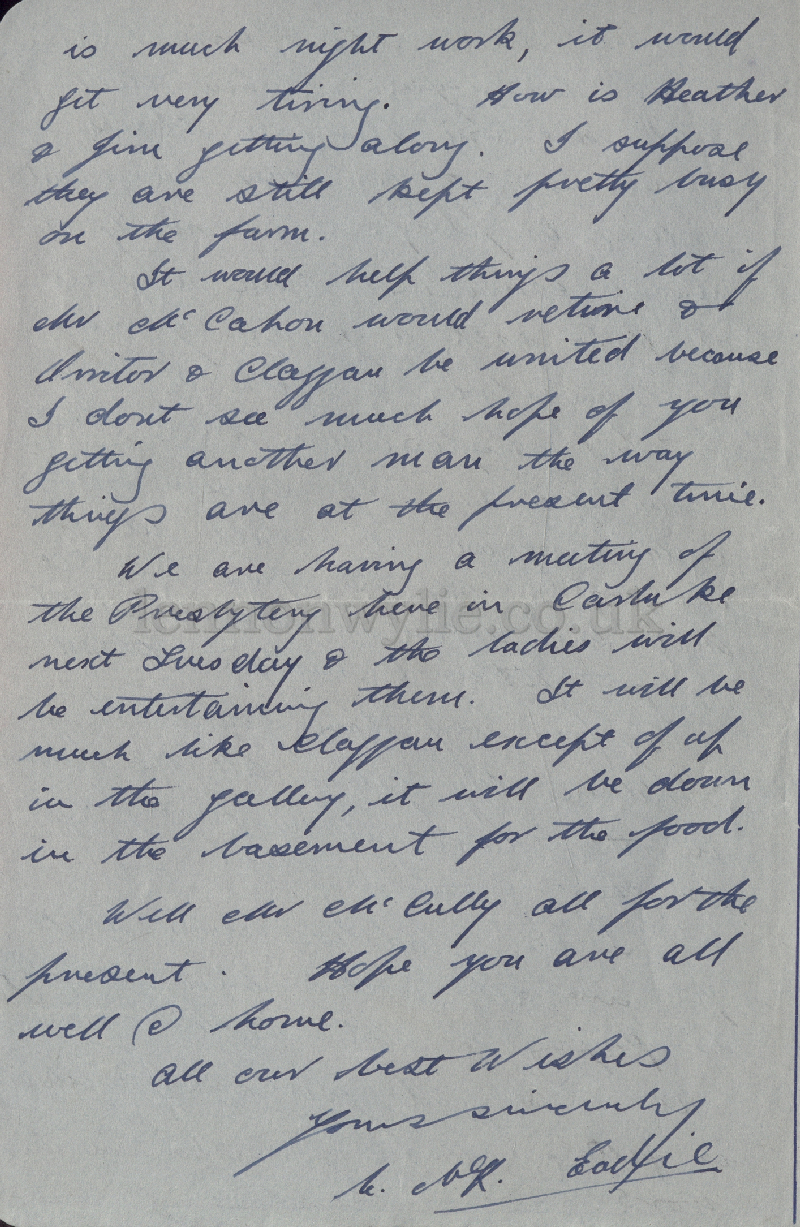 is much night work, it would
get very tiring. How is Heather
& Jim getting along. I suppose
they are still kept pretty busy
on the farm.
It would help things a lot if
Mr McCahon would retire &
& Claggan be united because
I dont see much hope of you
getting another man the way
things are at the present time.
We are having a meeting of
the Presbytery here in Carluke
lennonwylie.co.uk
next Tuesday & the ladies will
be entertaining them. It will be
much like Claggan except of up
in the gallery, it will be down
in the basement for the food.
Well Mr McCully all for the
present. Hope you are all
well @ home.
All our best Wishes
Yours sincerely